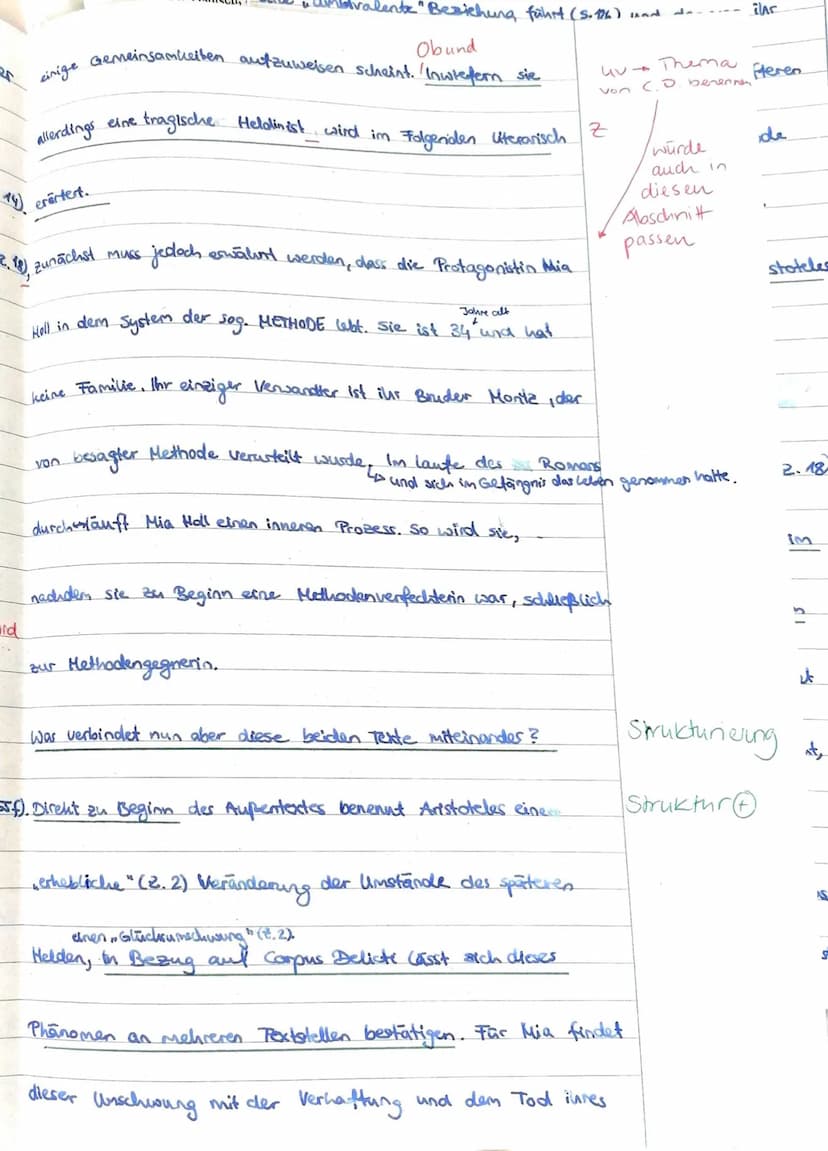 "ambivalente" Beziehung führt (S. 126) und ihr
Ob und
einige Gemeinsamkeiten aufzuweisen scheint. Inwiefern sie
uv → Thema
von C.D. benennen
fteren
allerdings eine tragische Heldin ist, wird im Folgenden literarisch
Z
de
würde
auch in
diesen
Abschnitt
passen
14)
erörtert.
Z. 18), zunächst muss jedoch erwähnt werden, dass die Protagonistin Mia
stoteles
Jahre alt
Holl in dem System der sog. METHODE lebt. Sie ist 34 und hat
keine Familie. Ihr einziger Verwandter ist ihr Bruder Moritz, der
von besagter Methode verurteilt wurde, Im Laufe des Romans
Z. 18
↳ und sich im Gefängnis das Leben genommen hatte.
durchläuft Mia Holl einen inneren Prozess. So wird sie,
im
nachdem sie zu Beginn eine Methodenverfechterin war, schließlich
zur Methodengegnerin.
Was verbindet nun aber diese beiden Texte miteinander?
Strukturierung
55f). Direkt zu Beginn des Außentextes benennt Aristoteles eine
Struktur +
"erhebliche" (Z. 2) Veränderung der Umstände des späteren
einen "Glücksumschwung" (Z. 2).
Helden, in Bezug auf Corpus Delicti lässt sich dieses
Phänomen an mehreren Textstellen bestätigen. Für Mia findet
dieser Umschwung mit der Verhaftung und dem Tod ihres